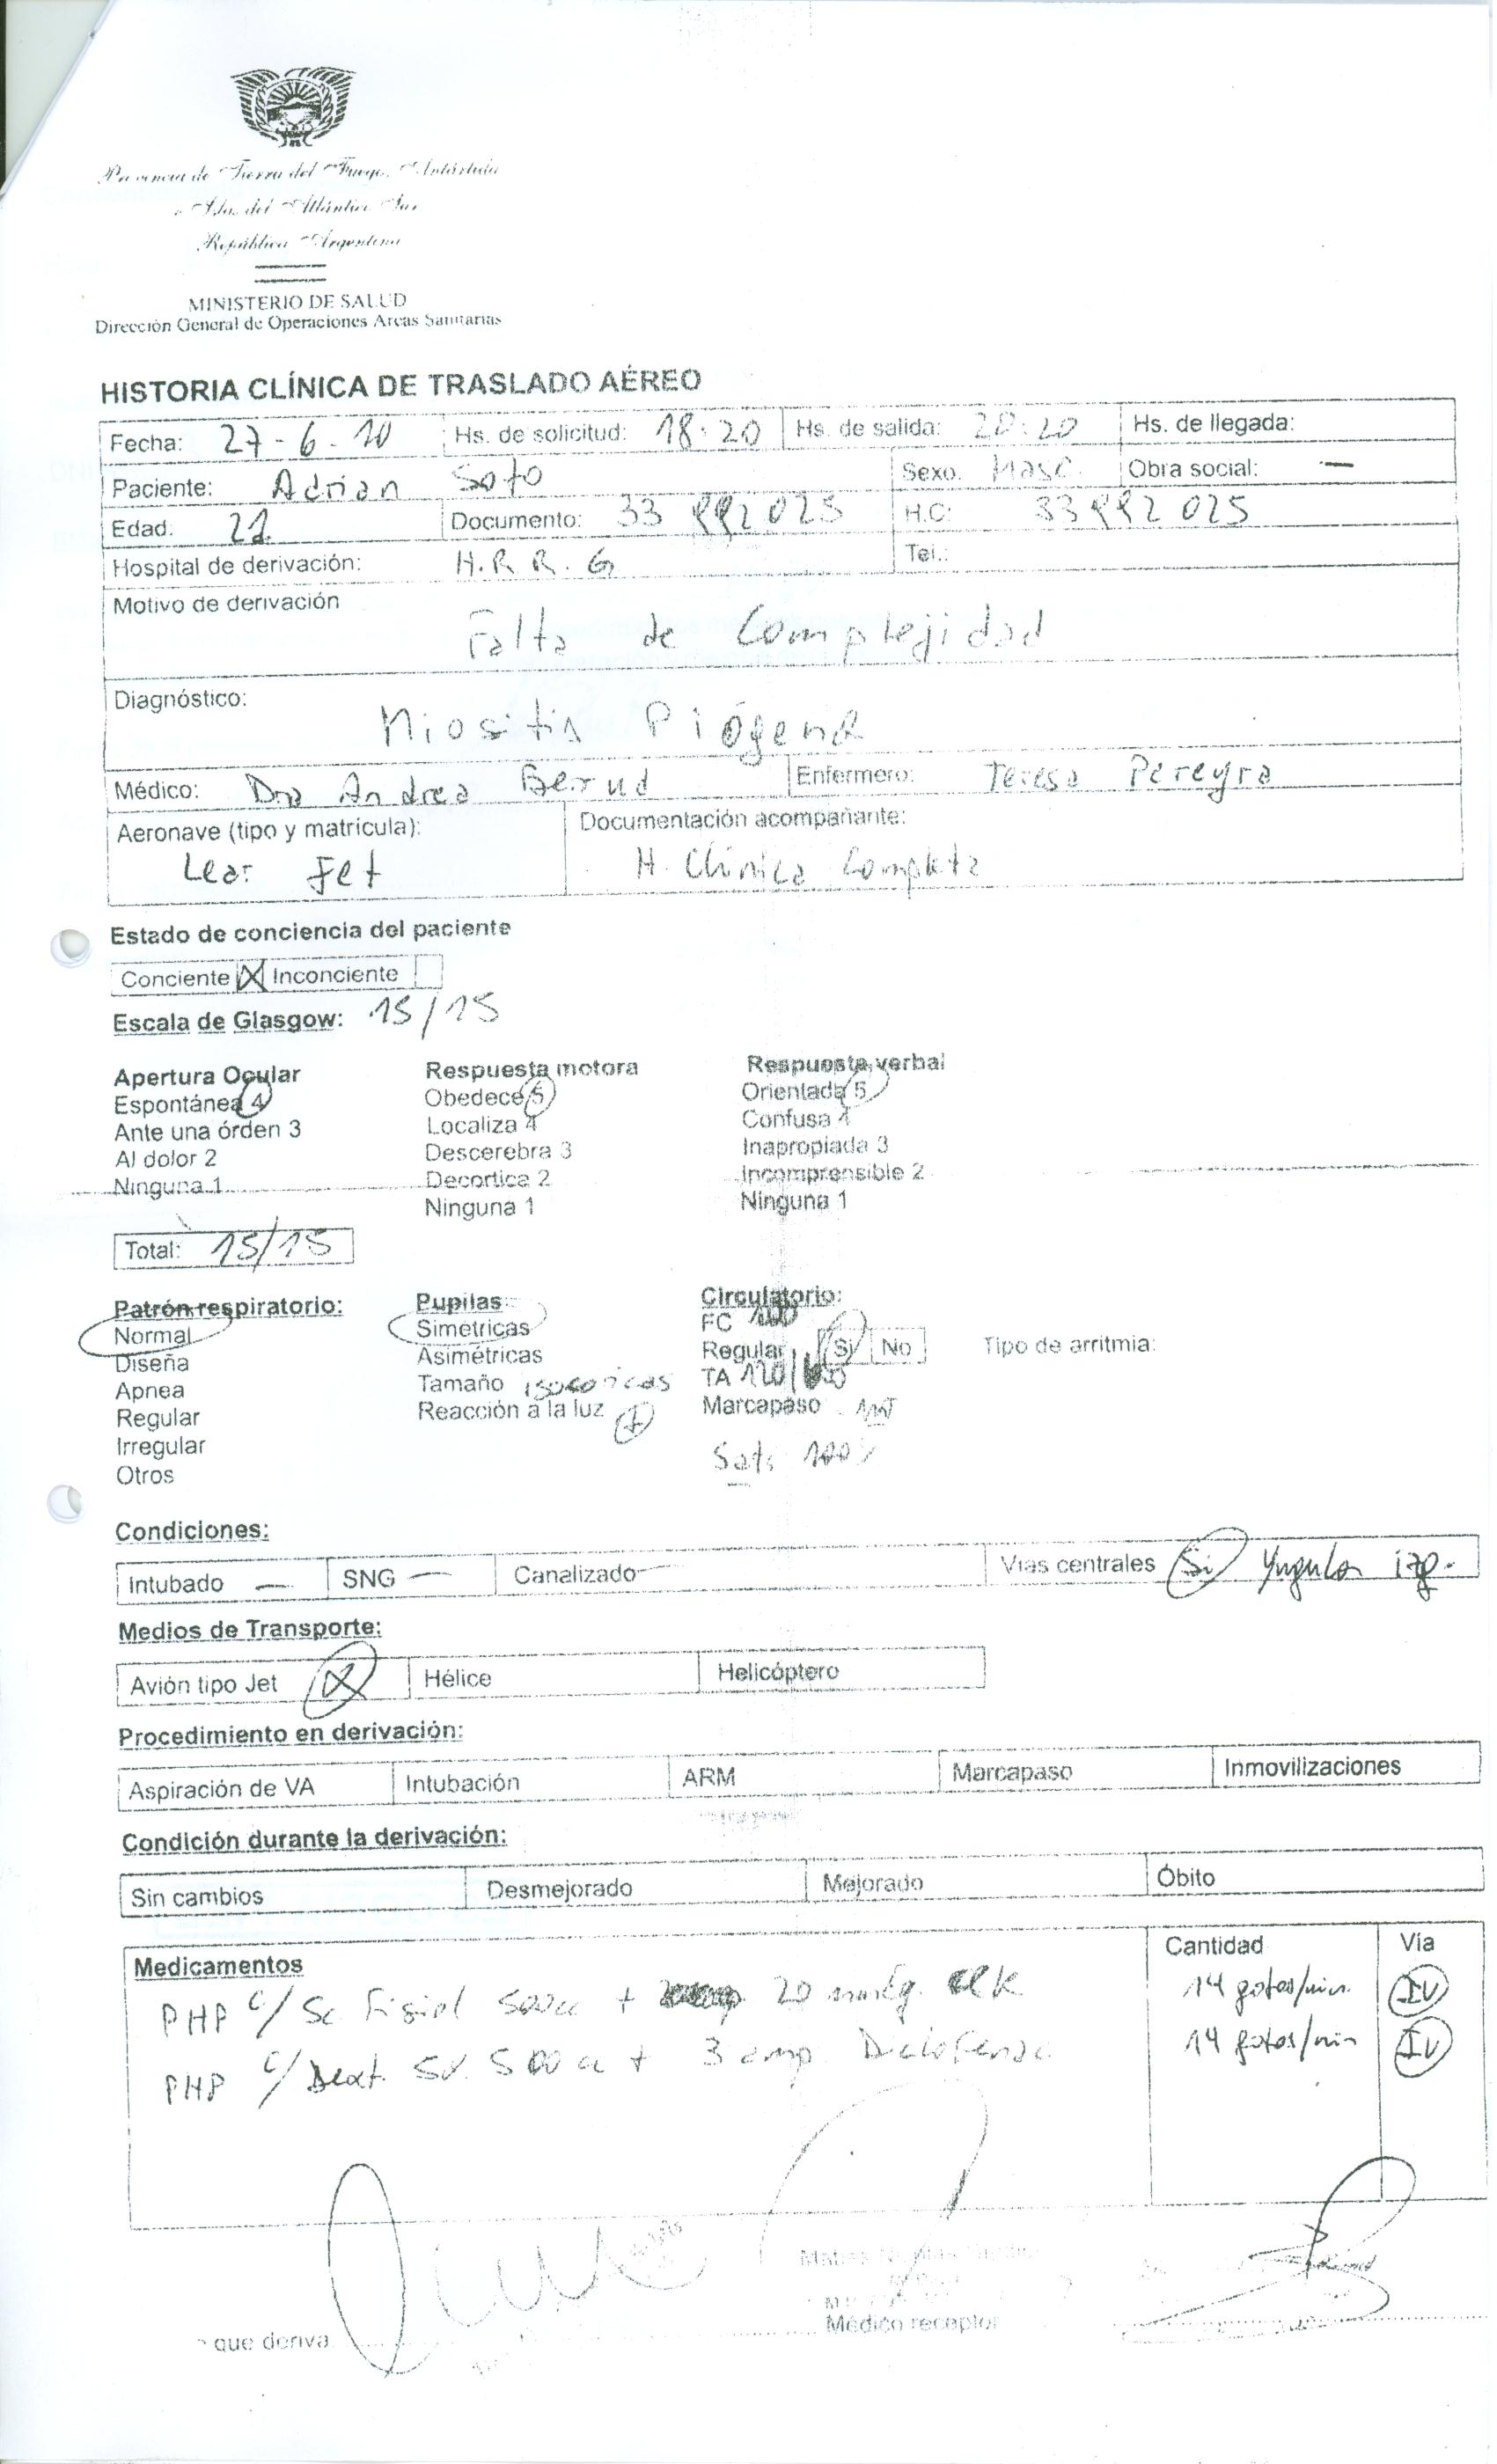 Provincia de Tierra del Fuego, Antártida
e Islas del Atlántico Sur
República Argentina
MINISTERIO DE SALUD
Dirección General de Operaciones Areas Sanitarias
HISTORIA CLÍNICA DE TRASLADO AÉREO
Fecha: 27-6-10 Hs. de solicitud: 18:20 Hs. de salida: 20:20 Hs. de llegada:
Paciente: Adrian Soto Sexo. Masc. Obra social: —
Edad. Documento: 33 992 025 H.C: 33992 025
Hospital de derivación: H.R.R.G Tel.:
Motivo de derivación
Falta de Complejidad
Diagnóstico:
Miositis Piógena
Médico: Dra Andrea Enfermero: Teresa Pereyra
Aeronave (tipo y matrícula): Documentación acompañante:
Lear Jet H. Clínica Completa
Estado de conciencia del paciente
Conciente X Inconciente
Escala de Glasgow: 15/15
Apertura Ocular Respuesta motora Respuesta verbal
Espontánea 4 Obedece 5 Orientada 5
Ante una órden 3 Localiza 4 Confusa 4
Al dolor 2 Descerebra 3 Inapropiada 3
Ninguna 1 Decortica 2 Incomprensible 2
Ninguna 1 Ninguna 1
Total: 15/15
Patrón respiratorio: Pupilas: Circulatorio:
Normal Simétricas FC 100
Diseña Asimétricas Regular Si No Tipo de arritmia:
Apnea Tamaño isocoricas TA 120/
Regular Reacción a la luz + Marcapaso
Irregular Sat: 100%
Otros
Condiciones:
Intubado — SNG — Canalizado — Vías centrales Si Yugular izq.
Medios de Transporte:
Avión tipo Jet X Hélice Helicóptero
Procedimiento en derivación:
Aspiración de VA Intubación ARM Marcapaso Inmovilizaciones
Condición durante la derivación:
Sin cambios Desmejorado Mejorado Óbito
Medicamentos Cantidad Vía
PHP c/ Sc. Fisiol 500cc + 20 mEq. ClK 14 gotas/min. IV
PHP c/ Dext. 5% 500 cc + 3 amp. Diclofenac 14 gotas/min IV
que deriva Médico receptor